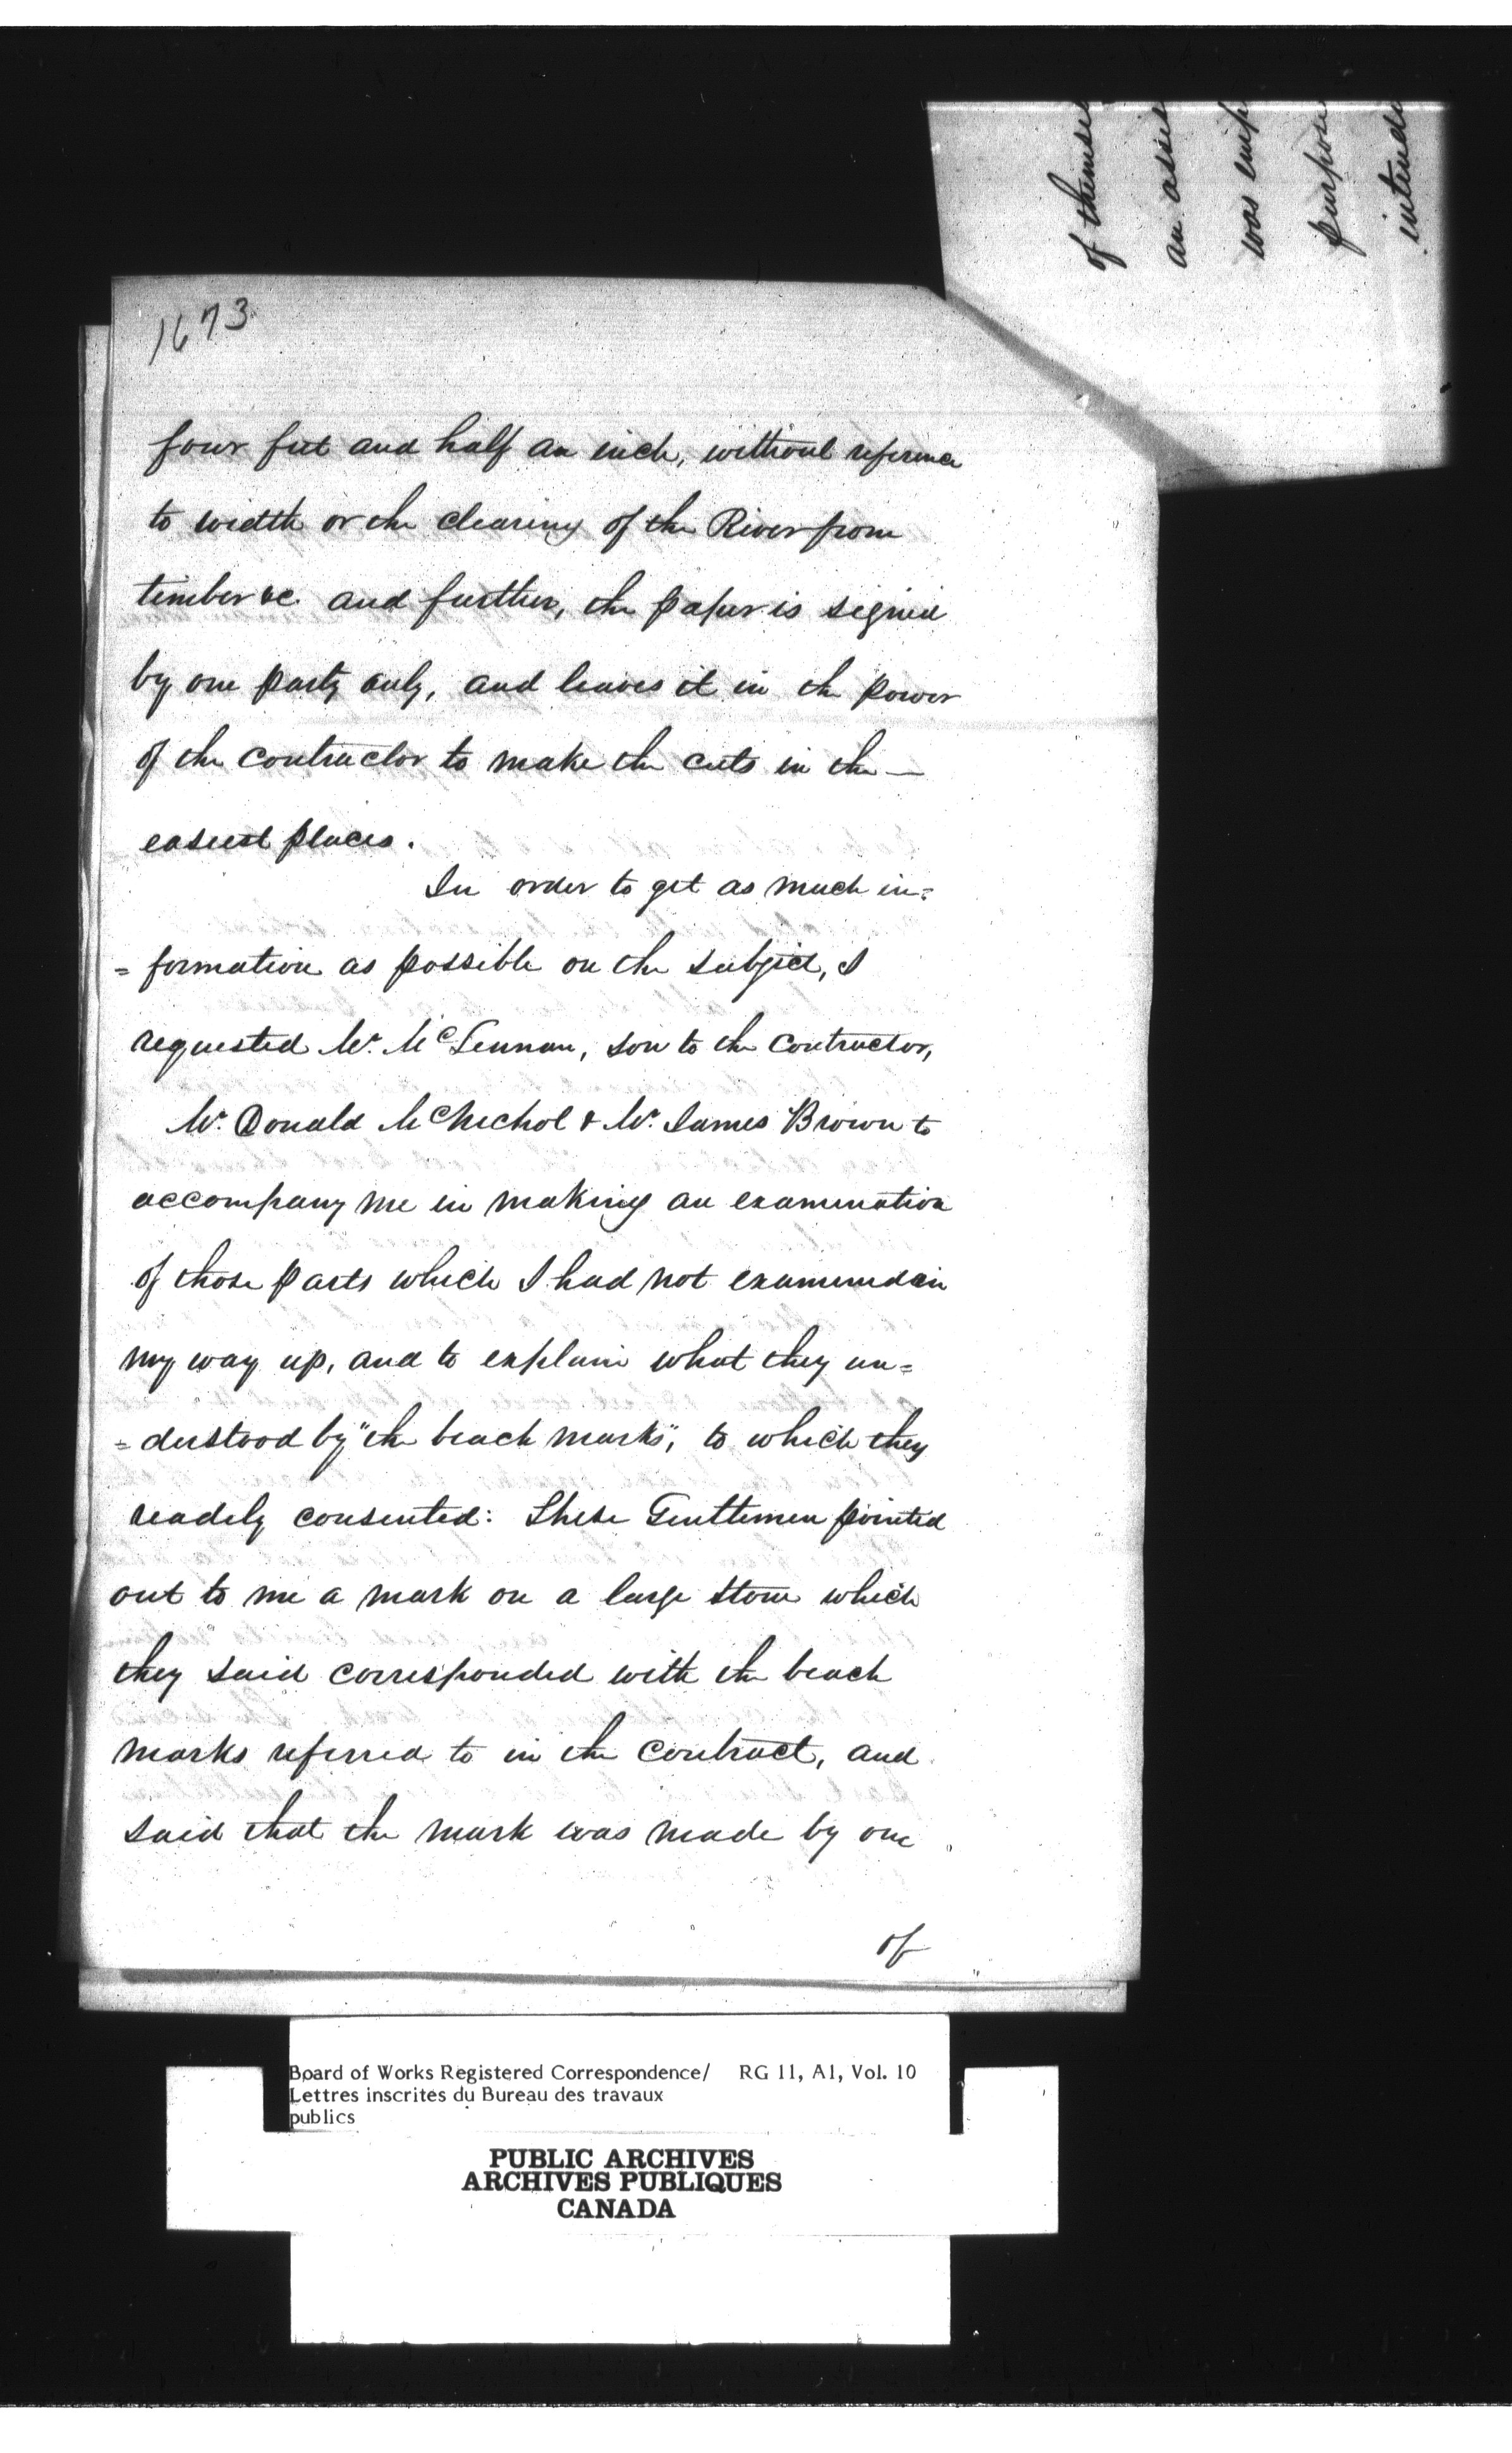 of themse
an assis
was emp
purpose
intende
1673
four feet and half an inch, without reference
to width or the clearing of the River from
timber &c and further, the paper is signed
by one party only, and leaves it in the power
of the contractor to make the cuts in the —
easiest places.
In order to get as much in=
= formation as possible on the subject, I
requested Mr. McLennan, son to the Contractor,
Mr. Donald McNichol & Mr. James Brown to
accompany me in making an examination
of those parts which I had not examined in
my way up, and to explain what they un=
= derstood by "the beach marks", to which they
readily consented: These Gentlemen pointed
out to me a mark on a large stone which
they said corresponded with the beach
marks referred to in the contract, and
said that the mark was made by one
of
Board of Works Registered Correspondence/ RG 11, A1, Vol. 10
Lettres inscrites du Bureau des travaux
publics
PUBLIC ARCHIVES
ARCHIVES PUBLIQUES
CANADA